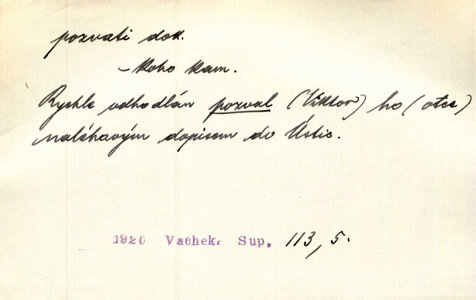 pozvati dok.
– koho kam.
Rychle odhodlán pozval (Viktor) ho (otce)
naléhavým dopisem do Ústic.
1920 Vachek. Sup. 113, 5.